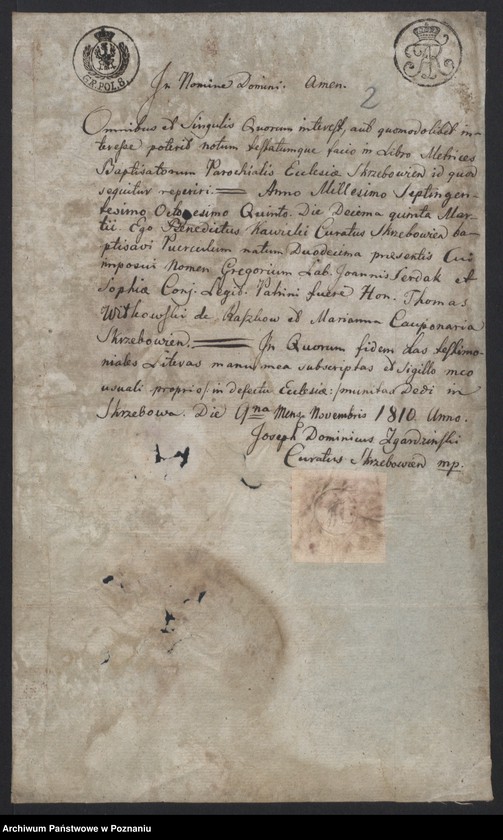 G.P. POLS.
FA
In Nomine Domini. Amen.
2
Omnibus et Singulis Quorum interest, aut quomodolibet in-
teresse poterit notum testatumque facio in Libro Metrices
Baptisatorum Parochialis Ecclesiæ Skrzebowien id quod
sequitur reperiri. Anno Millesimo Septingen-
tesimo Octogesimo Quinto. Die Decima quinta Mar-
tii. Ego Benedictus Curatus Skrzebowien ba-
ptisavi Puerculum natum Duodecima præsentis Cui
imposui Nomen Gregorium Lab. Joannis Serdak et
Sophiæ Conj. Legit. Patrini fuere Hon. Thomas
Witkowski de Raszkow et Marianna Cauponaria
Skrzebowien. In Quorum fidem has testimo-
niales Literas manu mea subscriptas et Sigillo meo
usuali proprio /: in defectu Ecclesiæ :/ munitas Dedi in
Skrzebowa. Die 9na Mens. Novembris 1810. Anno.
Joseph Dominicus Zgardzinski
Curatus Skrzebowien mp.
Archiwum Państwowe w Poznaniu